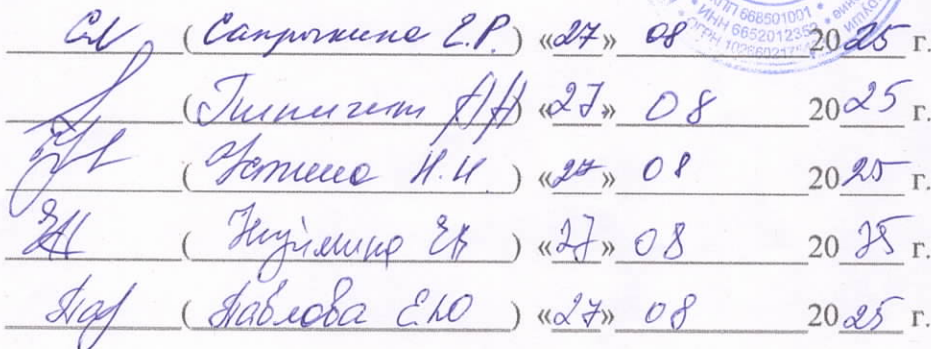 КПП 668501001
ИНН 6652012352
ОГРН
(Сапрыкина Е.Р.) «27» 08 2025 г.
( ) «27» 08 2025 г.
(Устинова Н.И.) «27» 08 2025 г.
(Куймина ЕВ) «27» 08 2025 г.
(Павлова Е.Ю) «27» 08 2025 г.